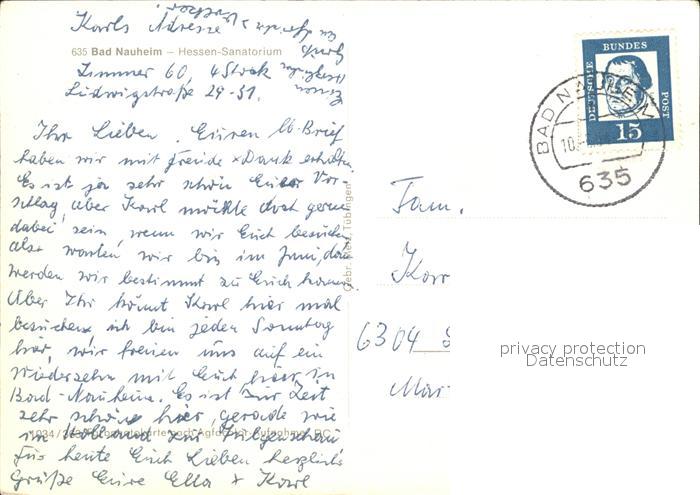 Karls Adresse
635 Bad Nauheim – Hessen-Sanatorium
Zimmer 60, 4 Stock
Ludwigstraße 29-31.
Ihr Lieben. Euren lb. Brief
haben wir mit Freude + Dank erhalten.
Es ist ja sehr schön Euer Vor-
schlag, aber Karl möchte doch gern
dabei sein, wenn wir Euch besuchen
also warten wir bis im Juni, dann
werden wir bestimmt zu Euch kommen
Aber Ihr könnt Karl hier mal
besuchen, ich bin jeden Sonntag
hier, wir freuen uns auf ein
Wiedersehn mit Euch hier in
Bad-Nauheim. Es ist zur Zeit
sehr schön hier, gerade wie
in Holland zur
Für heute Euch Lieben herzliche
Grüße Eure Ella + Karl
Gebr. Metz, Tübingen
DEUTSCHE BUNDESPOST
15
BAD NAUHEIM
10.
635
Fam.
6304
privacy protection
Datenschutz